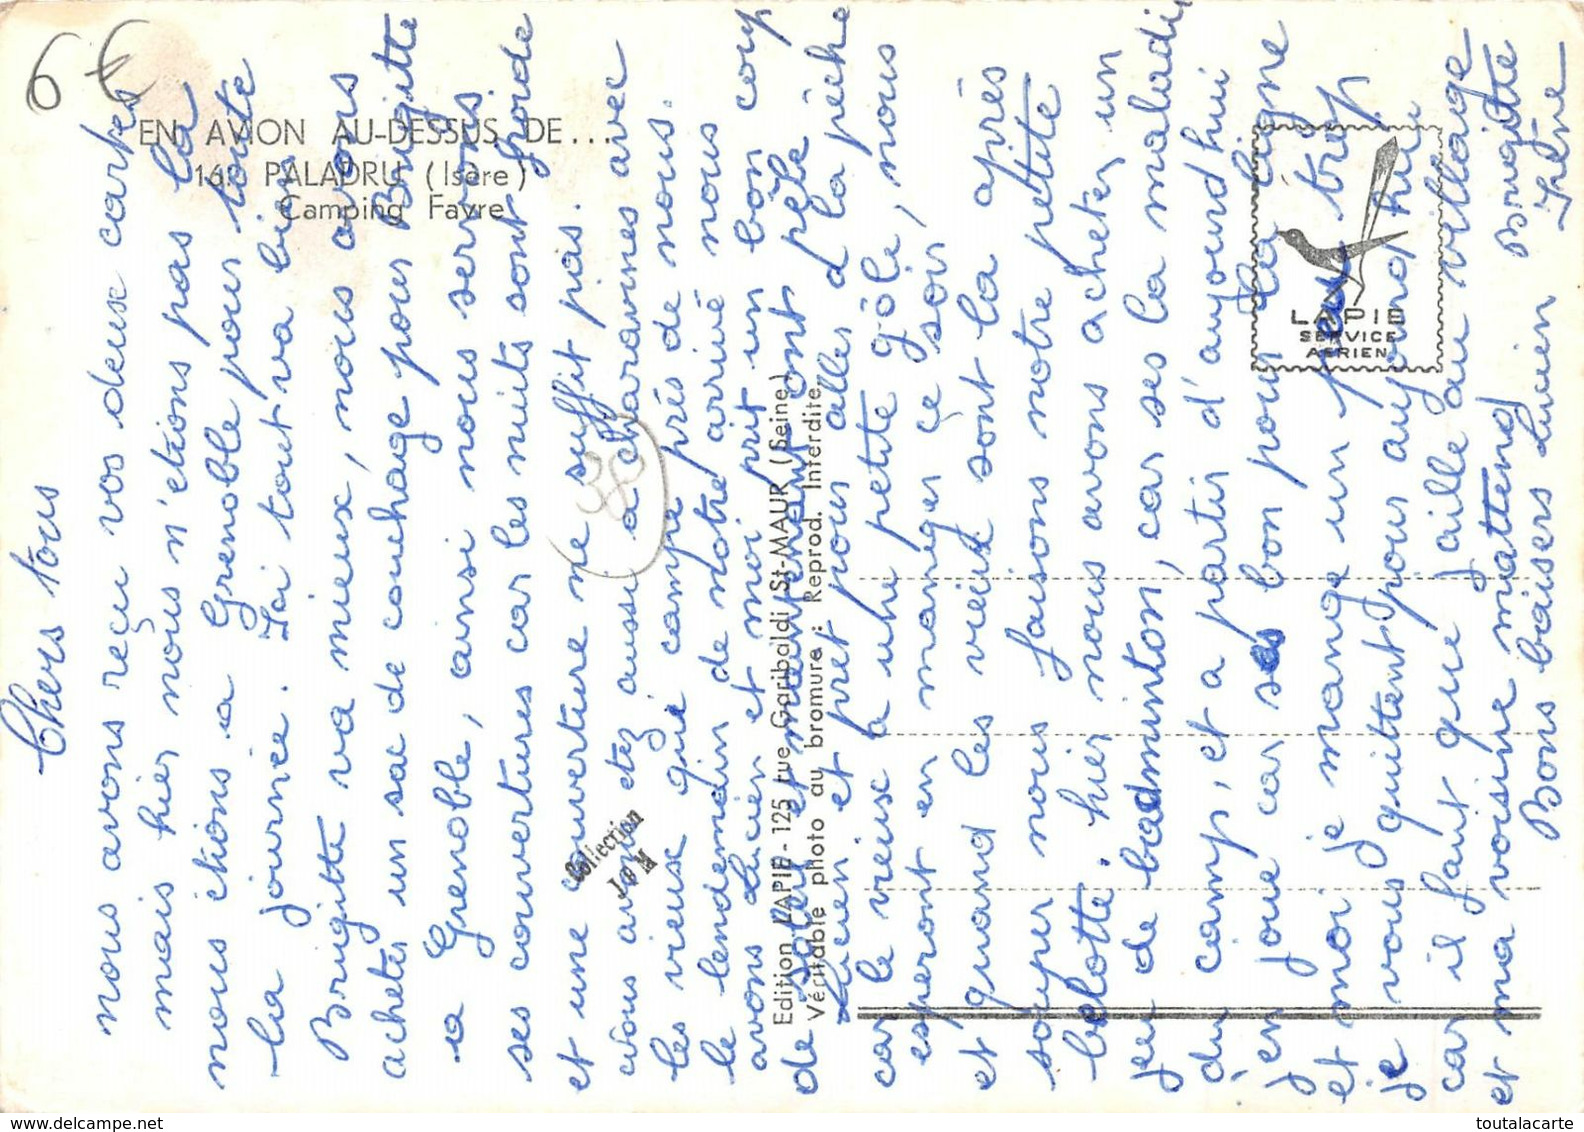 6 €
EN AVION AU-DESSUS DE...
162 PALADRU (Isère)
Camping Favre
LAPIE
SERVICE
AERIEN
Edition LAPIE - 125 rue Garibaldi St-MAUR (Seine)
Véritable photo au bromure : Reprod. Interdite
Collection
J&M
38
Chers tous
nous avons reçu vos deux cartes
mais hier nous n'étions pas là
nous étions a Grenoble pour toute
la journée. Ici tout va bien
Brigitte va mieux, nous avons
acheter un sac de couchage pour Brigitte
a Grenoble, ainsi nous servons
ses couvertures car les nuits sont froide
et une couverture ne suffit pas.
vous avons etez aussi a charavines avec
les vieux qui campe près de nous.
le lendemain de notre arrivé nous
avons Lucien et moi prit un bon coup
de soleil et maintenant ont pèle
Lucien et pret pour aller a la pèche
car le vieux a une petite gôle, nous
esperont en manger ce soir,
et quand les vieux sont la après
souper nous faisons notre petite
belotte, hier nous avons acheter un
jeu de badminton, car ses la maladie
du camp, et a partir d'aujourd'hui
j'en joue car ses bon pour la ligne
et moi je mange un peu trop
je vous quittent pour aujourd'hui
car il faut que j'aille au village
et ma voisine mattend
Bons baisers Lucien Brigitte
Irène
toutalacarte